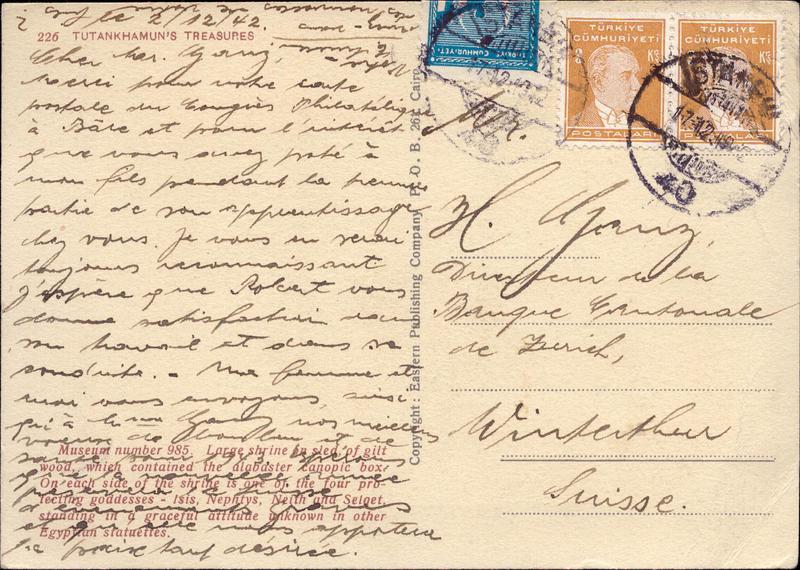 le 2/12/42.
226 TUTANKHAMUN'S TREASURES
Cher Mr. Ganz,
Merci pour votre carte
postale du Congrès Philatélique
à Bâle et pour l'intérêt
que vous avez porté à
mon fils pendant la première
partie de son apprentissage
chez vous. Je vous en serai
toujours reconnaissant
J'espère que Robert vous
donne satisfaction dans
son travail et dans sa
conduite. - Ma femme et
moi vous envoyons, ainsi
qu'à Mme Ganz, nos meilleurs
voeux de et de
Museum number 985. Large shrine on sled, of gilt
wood, which contained the alabaster canopic box.
On each side of the shrine is one of the four pro-
tecting goddesses - Isis, Nephtys, Neith and Selqet,
standing in a graceful attitude unknown in other
Egyptian statuettes.
et qui nous apportera
la paix tant désirée.
Copyright: Eastern Publishing Company, P. O. B. 261, Cairo
TÜRKİYE CÜMHURİYETİ
TÜRKİYE
CÜMHURİYETİ
Ks
POSTALARI
TÜRKİYE
CÜMHURİYETİ
Ks
POSTALARI
İSTANBUL
Mr.
H. Ganz,
Directeur de la
Banque Cantonale
de Zurich,
Winterthur
Suisse.